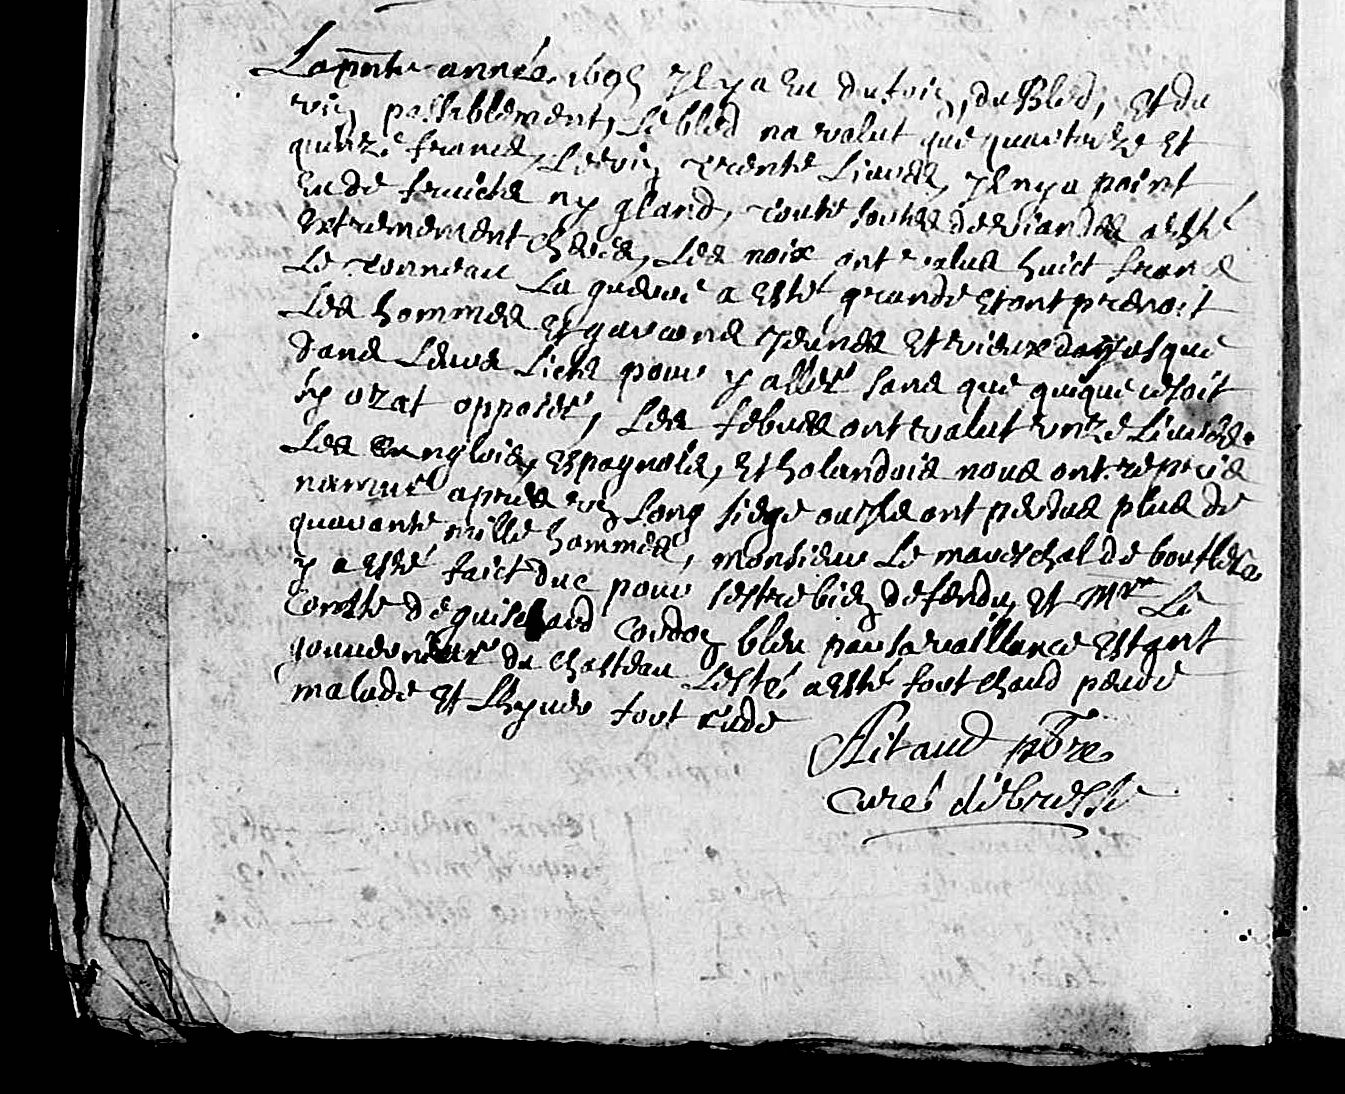 La pnte année 1695 Il y a eu du foin, du Bled, et du
vin passablement, Le bled na valut que quattorze et
quinze francs, Le vin trente Livres, Il ny a point
eu de fruicts ny gland, toutte sortes de viandes a esté
extremement cheres, Les noix ont valus huict francs
Le tonneau La guerre a esté grande et ont prenoit
Les hommes et garcons jeunes et vieux jusque
dans Leurs Licts pour y aller sans que quique ce soit
sy ozat opposer, Les febves ont valut unze Livres
Les Englois, Espagnols, et holandois nous ont repris
namur apres un Long siege ou Ils ont perdus plus de
quarante mille hommes, monsieur Le mareschal de bouflers
y a esté faict duc pour sestre bien defendu, et Mr Le
comte de guiscard cordon bleu pour sa vaillance estant
gouverneur du chasteau Lesté a esté fort chaud perde
malade et Lhyver fort rude
Ritaud pbre
curé de bresse